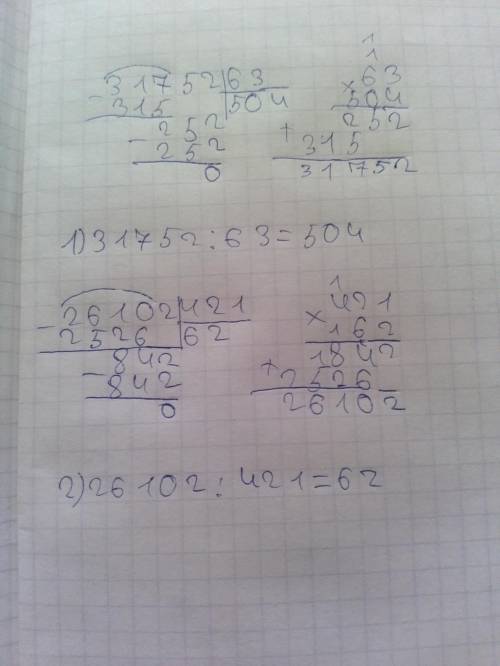 1
1
-31752|63 ×63
315 504 504
-252 252
252 +315
0 31752
1)31752:63=504
1
-26102|421 ×421
2526 62 162
-842 1842
842 +2526
0 26102
2)26102:421=62